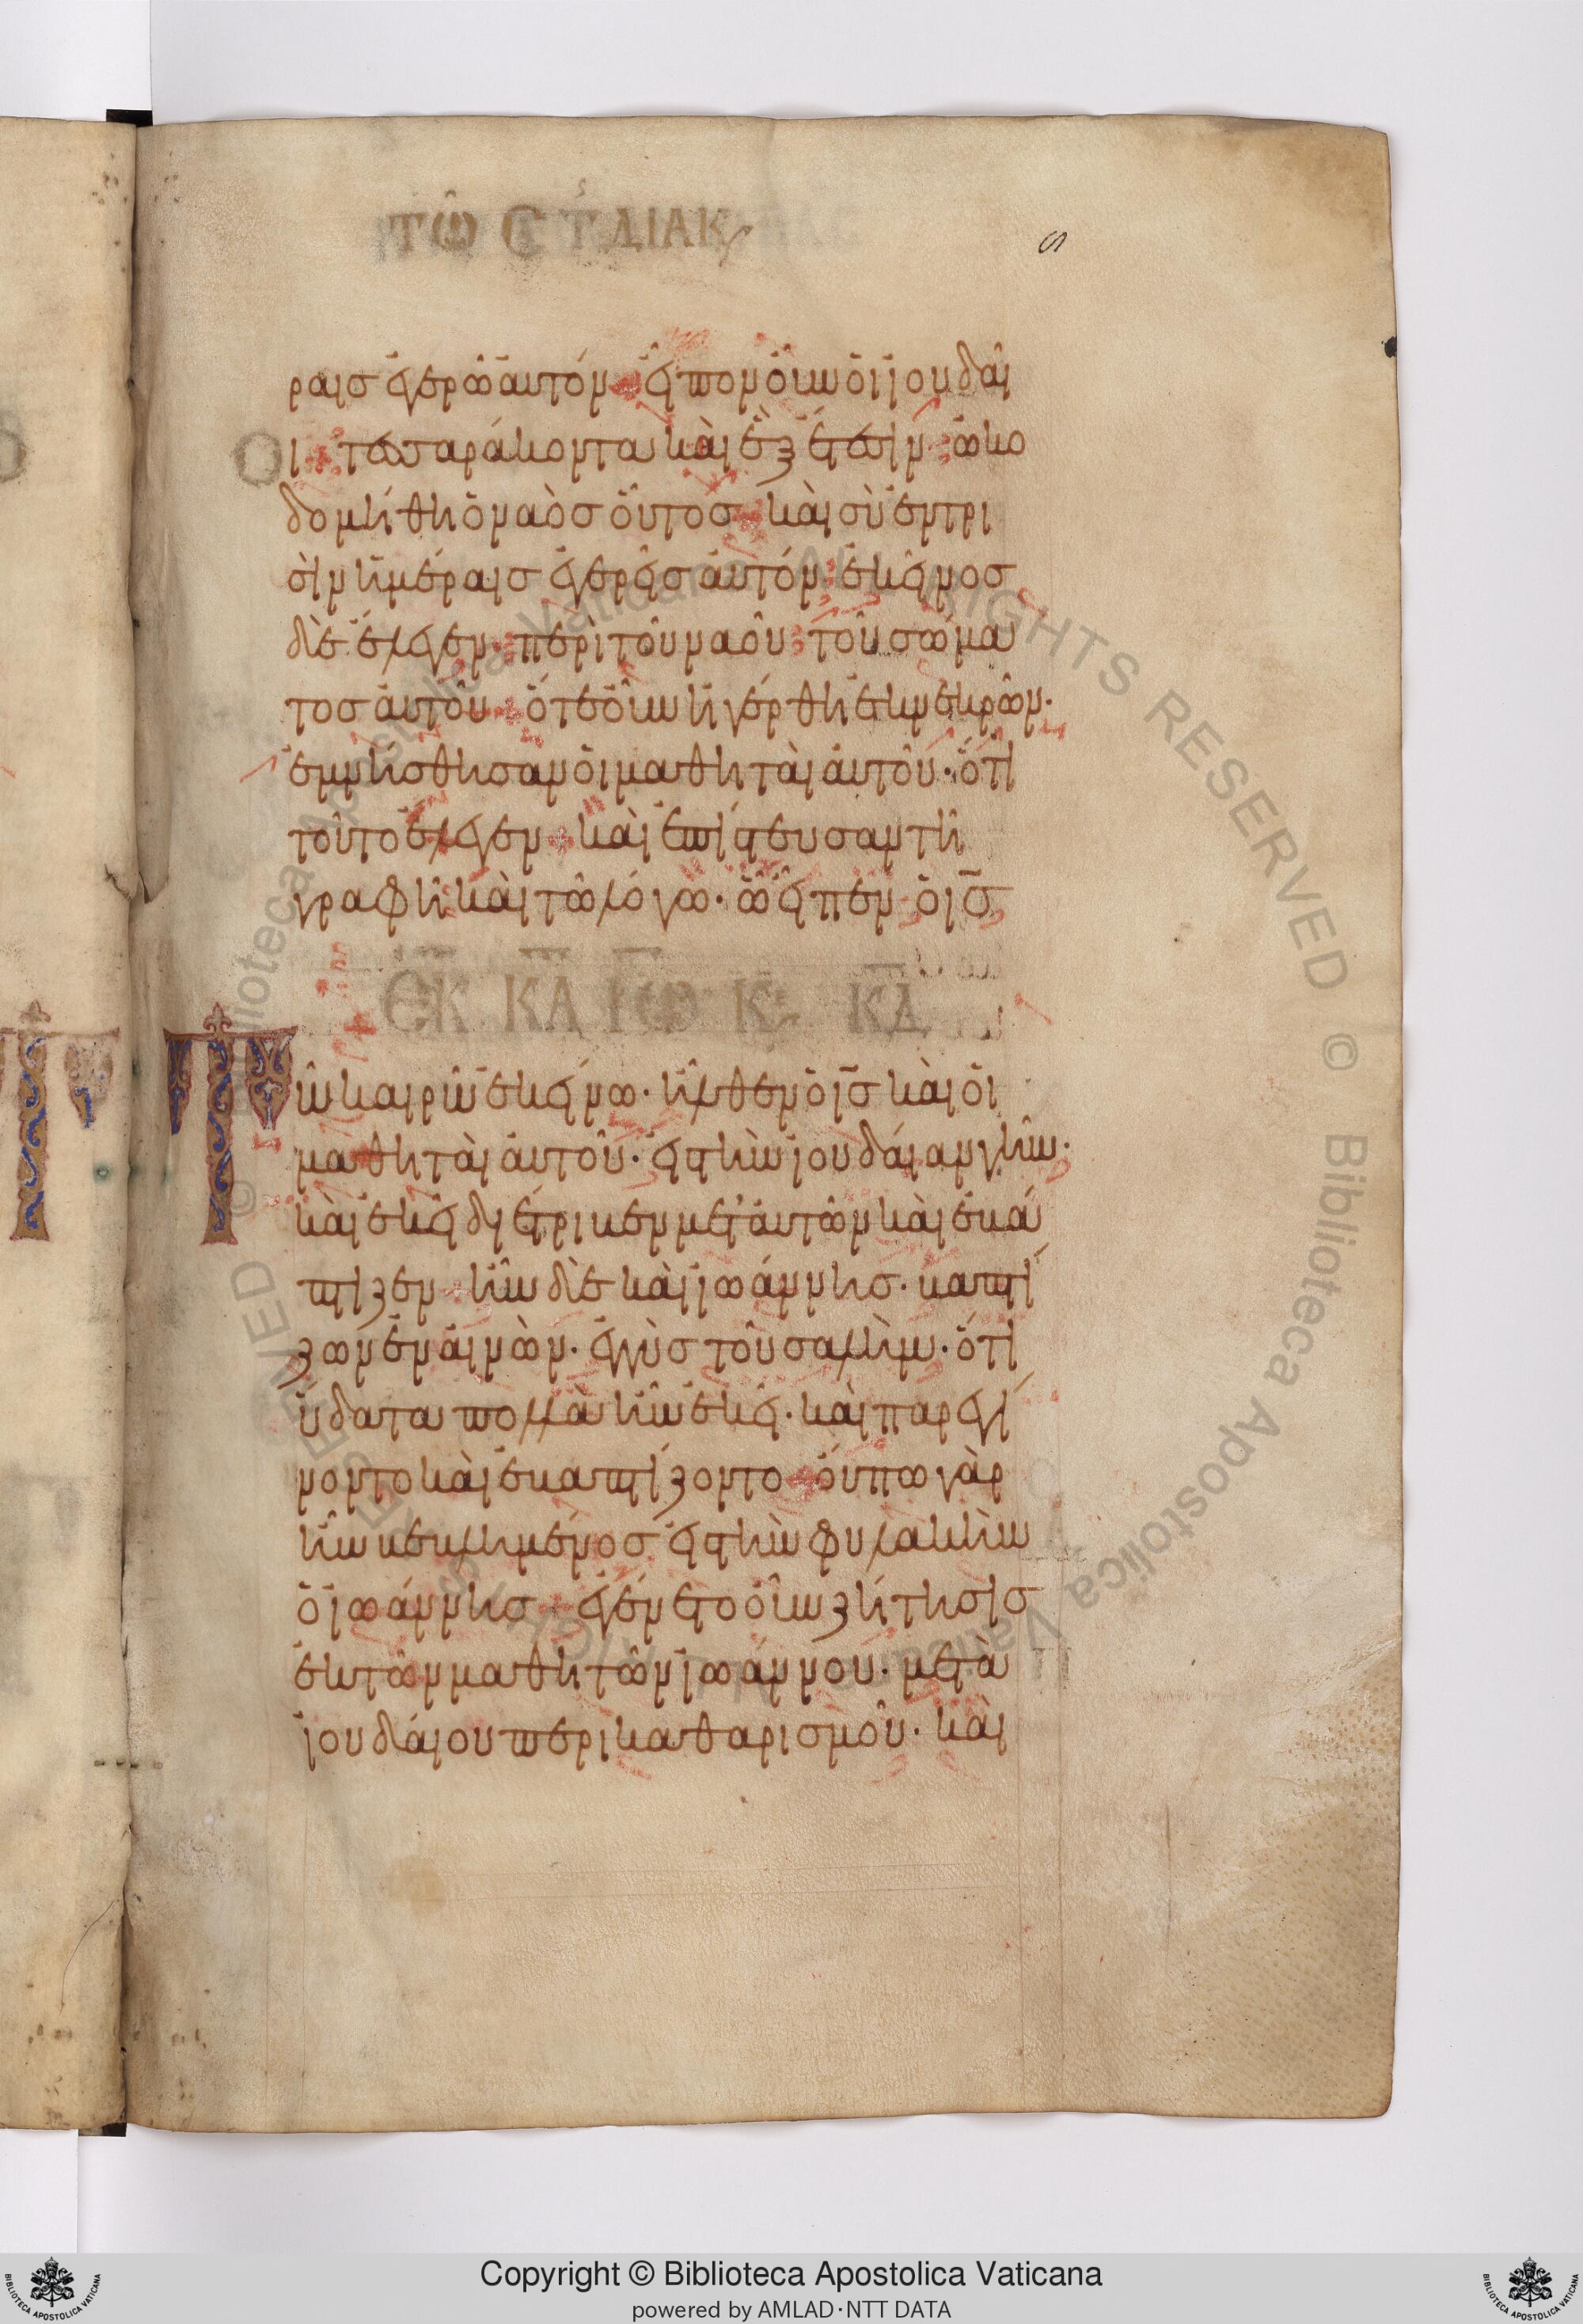 ΤΩ Ϛ Τ ΔΙΑΚ
ς
ραισ ἐγερῶ ἀυτόν· ἐῖπον ὀῦν ὁι ἰουδᾶι
οι· τεσσαράκοντα κὰι ἒξ ἔτεσιν· ὠκο
δομήθη ὁ ναὸσ ὁῦτοσ· κὰι σὺ ἐν τρι
σὶν ἡμέραισ ἐγερεῖσ ἀυτόν· ἐκεῖνοσ
δὲ ἔλεγεν· περὶ τοῦ ναοῦ τοῦ σώμα
τοσ ἀυτοῦ· ὅτε ὀῦν ἠγέρθη ἐκ νεκρῶν·
ἐμνήσθησαν ὁι μαθητὰι ἀυτοῦ· ὅτι
τοῦτο ἔλεγεν· κὰι ἐπίστευσαν τῆ
γραφῆ κὰι τῶ λόγω· ὧ ἐῖπεν ὁ ις
ΕΚ ΚΑ ΙΩ Κ ΚΔ
Τῶ καιρῶ ἐκείνω· ἦλθεν ὁ ις κὰι ὁι
μαθητὰι ἀυτοῦ· ἐισ τὴν ἰουδάιαν γῆν·
κὰι ἐκεῖ διέτριβεν μετ' ἀυτῶν κὰι ἐβά
πτιζεν· ἦν δὲ κὰι ἰωάννησ· βαπτί
ζων ἐν ἀινὼν· ἐγγὺσ τοῦ σαλὴμ· ὅτι
ὕδατα πολλὰ ἦν ἐκεῖ· κὰι παρεγί
νοντο κὰι ἐβαπτίζοντο· ὄυπω γὰρ
ἦν βεβλημένοσ ἐισ τὴν φυλακὴν
ὁ ἰωάννησ· ἐγένετο ὀῦν ζήτησισ
ἐκ τῶν μαθητῶν ἰωάννου· μετὰ
ἰουδάιου περὶ καθαρισμοῦ· κὰι
Copyright © Biblioteca Apostolica Vaticana
powered by AMLAD·NTT DATA